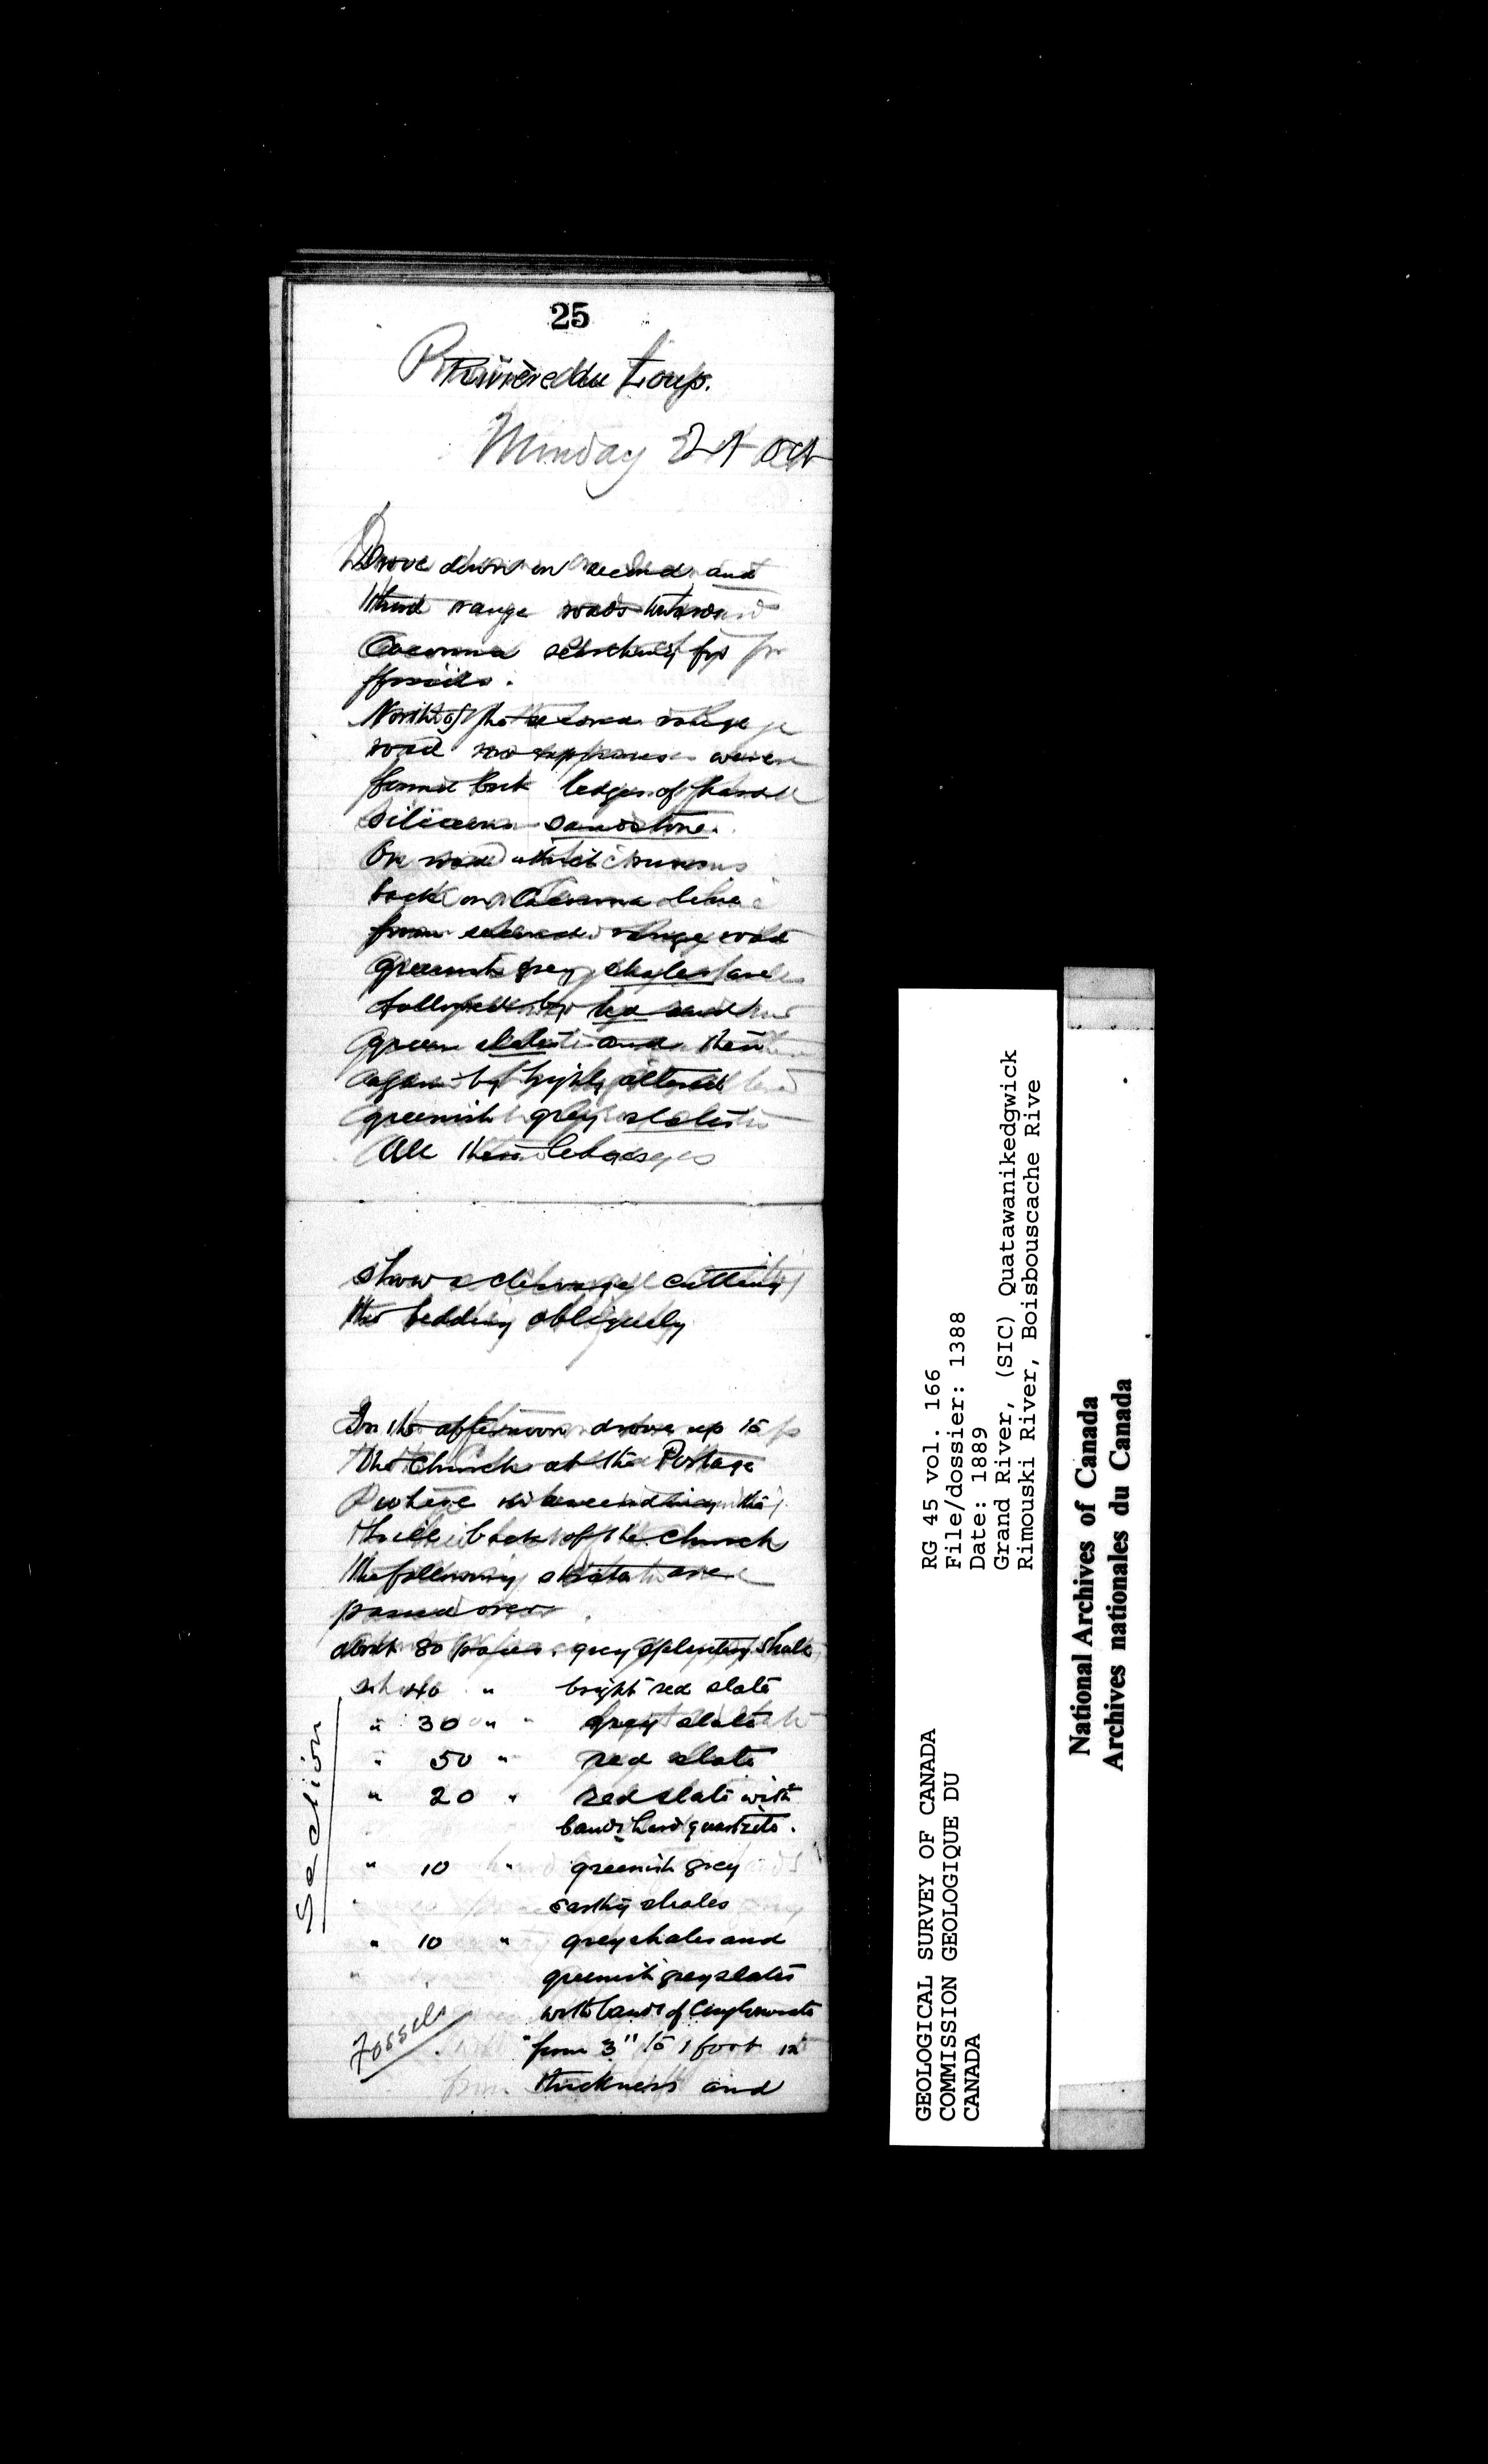 25
Rivière du Loup.
Monday 21st Oct
Drove down on second and
third range roads towards
Cacouna searching for
fossils.
North of the second range
road no exposures were
found but ledges of hard
siliceous sandstone.
On road which runs
back on Cacouna line
from second range road
greenish grey shales are
followed by red and
green slates and then
again by highly altered
greenish grey slates
All these ledges
show a cleavage cutting
the bedding obliquely
In the afternoon drove up to
the Church at the Portage
where in ascending the
hill back of the church
the following strata are
passed over
about 80 paces. grey splintery shale
40 " bright red slate
" 30 " grey slate
" 50 " red slate
" 20 " red slate with
bands hard quartzite.
" 10 " greenish grey
earthy shales
" 10 " grey shales and
greenish grey slates
with bands of conglomerate
from 3" to 1 foot in
thickness and
Section
Fossils
RG 45 vol. 166
File/dossier: 1388
Date: 1889
Grand River, (SIC) Quatawanikedgwick
Rimouski River, Boisbouscache Rive
GEOLOGICAL SURVEY OF CANADA
COMMISSION GEOLOGIQUE DU
CANADA
National Archives of Canada
Archives nationales du Canada